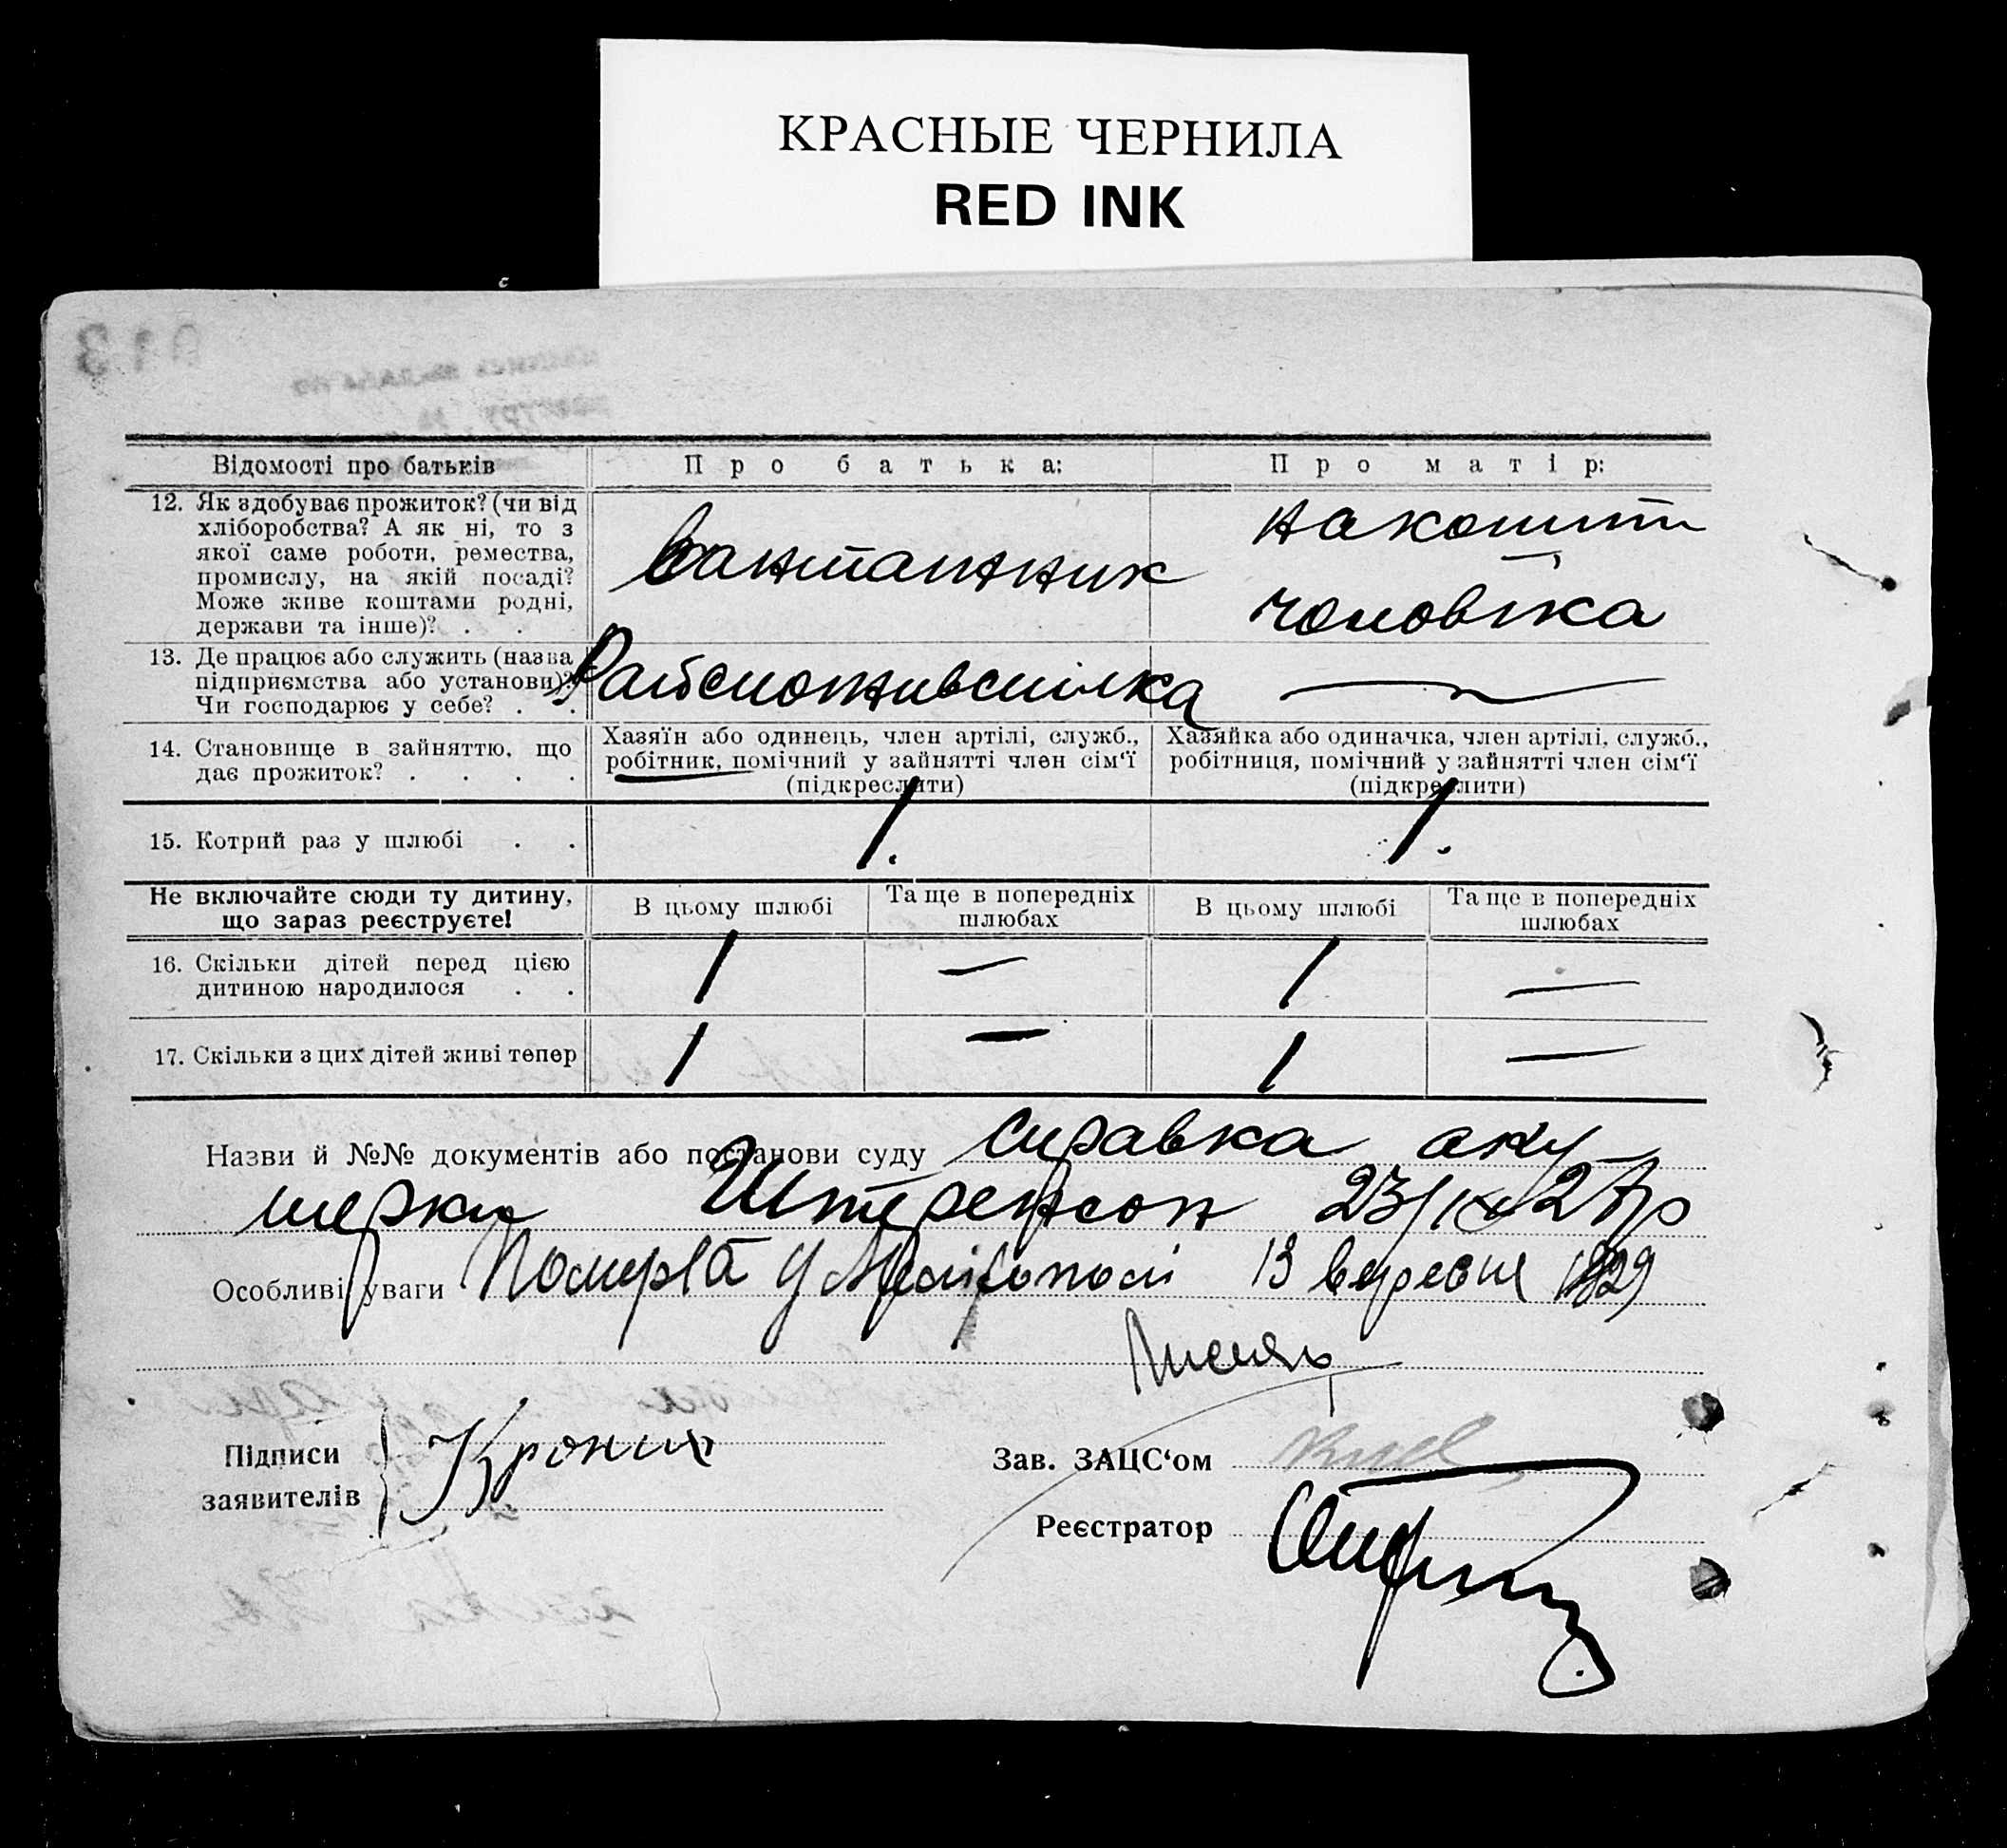 КРАСНЫЕ ЧЕРНИЛА
RED INK
Відомості про батьків
Про батька:
Про матір:
12. Як здобуває прожиток? (чи від
хліборобства? А як ні, то з
якої саме роботи, ремества,
промислу, на якій посаді?
Може живе коштами родні,
держави та інше)? . .
Вантажник
на кошти
чоловіка
13. Де працює або служить (назва
підприємства або установи)?
Чи господарює у себе? . .
Райспоживспілка
—
14. Становище в зайняттю, що
дає прожиток? . . . .
Хазяїн або одинець, член артілі, служб.,
робітник, помічний у зайнятті член сім‘ї
(підкреслити)
Хазяйка або одиначка, член артілі, служб.,
робітниця, помічний у зайнятті член сім‘ї
(підкреслити)
15. Котрий раз у шлюбі . .
1.
1.
Не включайте сюди ту дитину,
що зараз реєструєте!
В цьому шлюбі
Та ще в попередніх
шлюбах
В цьому шлюбі
Та ще в попередніх
шлюбах
16. Скільки дітей перед цією
дитиною народилося . .
1 — 1 —
17. Скільки з цих дітей живі тепер
1 — 1 —
Назви й №№ документів або постанови суду справка аку
шерки 23/IX
Особливі уваги Померла у Мелітополі 13 вересня 1929
Підписи
заявителів
Зав. ЗАЦС‘ом
Реєстратор